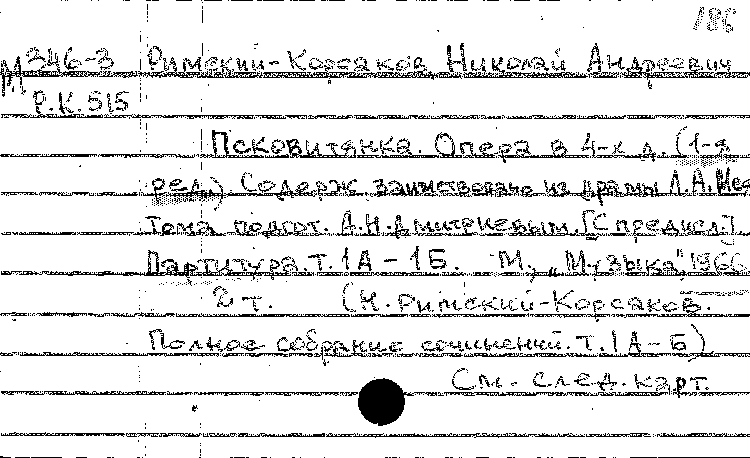 186
М 346-3 Римский-Корсаков, Николай Андреевич
Р.К.515
Псковитянка. Опера в 4-х д. (1-я
ред.) Содерж. заимствовано из драмы Л.А.Мея
Тома подгот. А.Н.Дмитриевым. [С предисл.].
Партитура. Т.1А - 1Б. М., „Музыка", 1966
2 т. (Н. Римский-Корсаков.
Полное собрание сочинений. Т. 1А - Б)
См. след. карт.